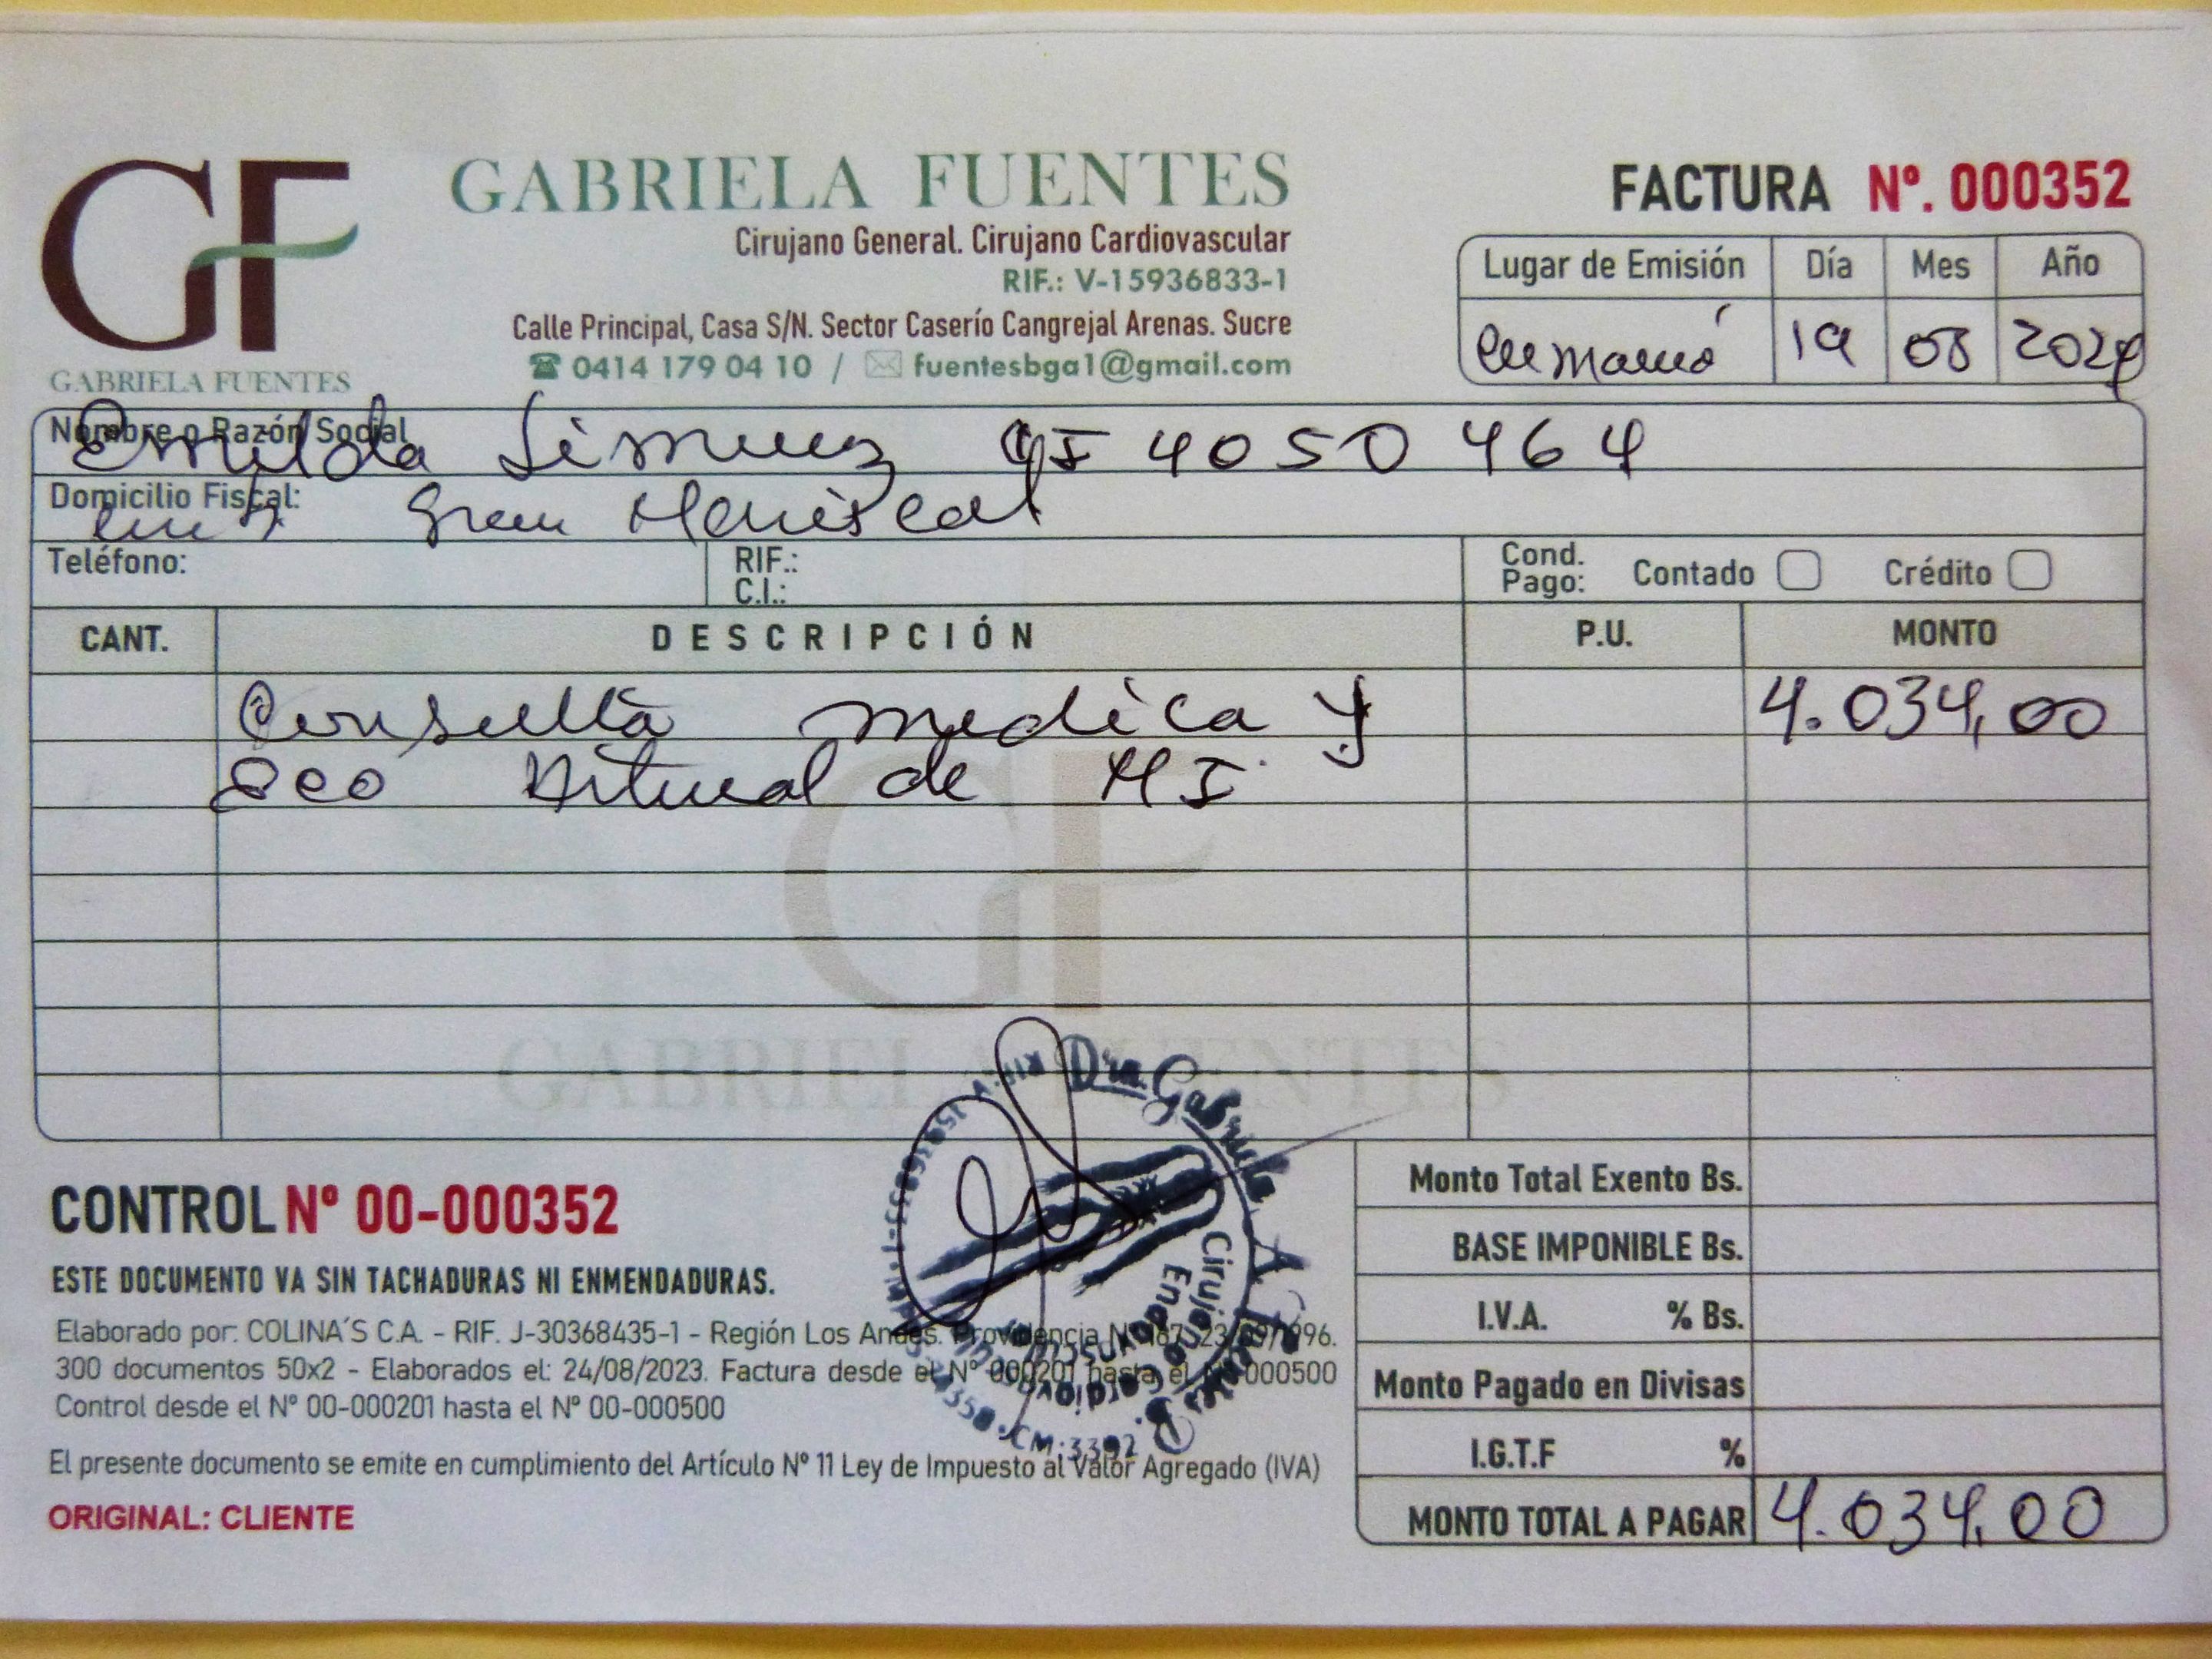 GF
GABRIELA FUENTES
GABRIELA FUENTES
Cirujano General. Cirujano Cardiovascular
RIF.: V-15936833-1
Calle Principal, Casa S/N. Sector Caserío Cangrejal Arenas. Sucre
0414 179 04 10 / fuentesbga1@gmail.com
FACTURA Nº. 000352
Lugar de Emisión Día Mes Año
Cumaná 19 08 2024
Nombre o Razón Social
Emilda Jimenez CI 4050464
Domicilio Fiscal:
Gran Mariscal
Teléfono: RIF.:
C.I.:
Cond. Pago: Contado Crédito
CANT. DESCRIPCIÓN P.U. MONTO
Consulta medica y 4.034,00
Eco Arterial de MI
GF
GABRIELA FUENTES
Dra. Gabriela A. Fuentes B.
Cirujano Cardiovascular
RIF: V-15936833-1
CM: 3392
CONTROL Nº 00-000352
ESTE DOCUMENTO VA SIN TACHADURAS NI ENMENDADURAS.
Elaborado por: COLINA´S C.A. - RIF. J-30368435-1 - Región Los Andes. Providencia
300 documentos 50x2 - Elaborados el: 24/08/2023. Factura desde el Nº 000201 hasta el Nº 000500
Control desde el Nº 00-000201 hasta el Nº 00-000500
El presente documento se emite en cumplimiento del Artículo Nº 11 Ley de Impuesto al Valor Agregado (IVA)
ORIGINAL: CLIENTE
Monto Total Exento Bs.
BASE IMPONIBLE Bs.
I.V.A. % Bs.
Monto Pagado en Divisas
I.G.T.F %
MONTO TOTAL A PAGAR 4.034,00